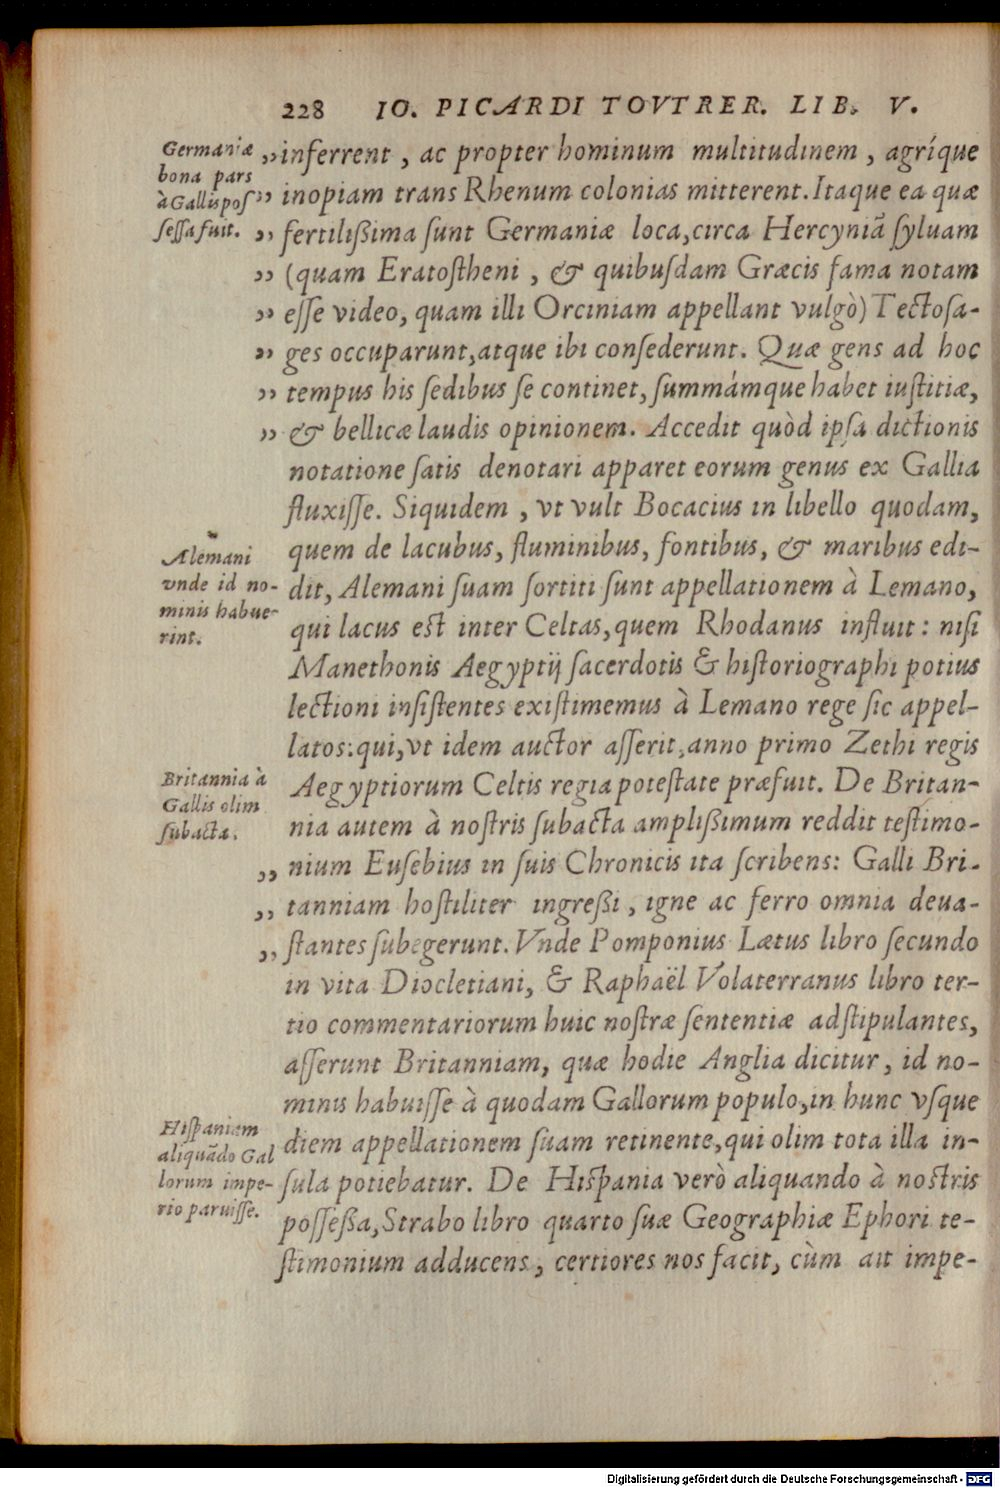 228 IO. PICARDI TOVTRER. LIB. V.
Germaniæ
bona pars
à Gallis pos
sessa fuit.
„ inferrent, ac propter hominum multitudinem, agríque
„ inopiam trans Rhenum colonias mitterent. Itaque ea quæ
„ fertilißima sunt Germaniæ loca, circa Hercyniā syluam
„ (quam Eratostheni, & quibusdam Græcis fama notam
„ esse video, quam illi Orciniam appellant vulgò) Tectosa-
„ ges occuparunt, atque ibi consederunt. Quæ gens ad hoc
„ tempus his sedibus se continet, summámque habet iustitiæ,
„ & bellicæ laudis opinionem. Accedit quòd ipsa dictionis
notatione satis denotari apparet eorum genus ex Gallia
fluxisse. Siquidem, vt vult Bocacius in libello quodam,
Alemani
vnde id no-
minis habue-
rint.
quem de lacubus, fluminibus, fontibus, & maribus edi-
dit, Alemani suam sortiti sunt appellationem à Lemano,
qui lacus est inter Celtas, quem Rhodanus influit: nisi
Manethonis Aegyptij sacerdotis & historiographi potius
lectioni insistentes existimemus à Lemano rege sic appel-
latos: qui, vt idem auctor asserit, anno primo Zethi regis
Britannia à
Gallis olim
subacta.
Aegyptiorum Celtis regia potestate præfuit. De Britan-
nia autem à nostris subacta amplißimum reddit testimo-
„ nium Eusebius in suis Chronicis ita scribens: Galli Bri-
„ tanniam hostiliter ingreßi, igne ac ferro omnia deua-
„ stantes subegerunt. Vnde Pomponius Lætus libro secundo
in vita Diocletiani, & Raphaël Volaterranus libro ter-
tio commentariorum huic nostræ sententiæ adstipulantes,
asserunt Britanniam, quæ hodie Anglia dicitur, id no-
minis habuisse à quodam Gallorum populo, in hunc vsque
Hispaniam
aliquādo Gal
lorum impe-
rio paruisse.
diem appellationem suam retinente, qui olim tota illa in-
sula potiebatur. De Hispania verò aliquando à nostris
posseßa, Strabo libro quarto suæ Geographiæ Ephori te-
stimonium adducens, certiores nos facit, cùm ait impe-
Digitalisierung gefördert durch die Deutsche Forschungsgemeinschaft - DFG